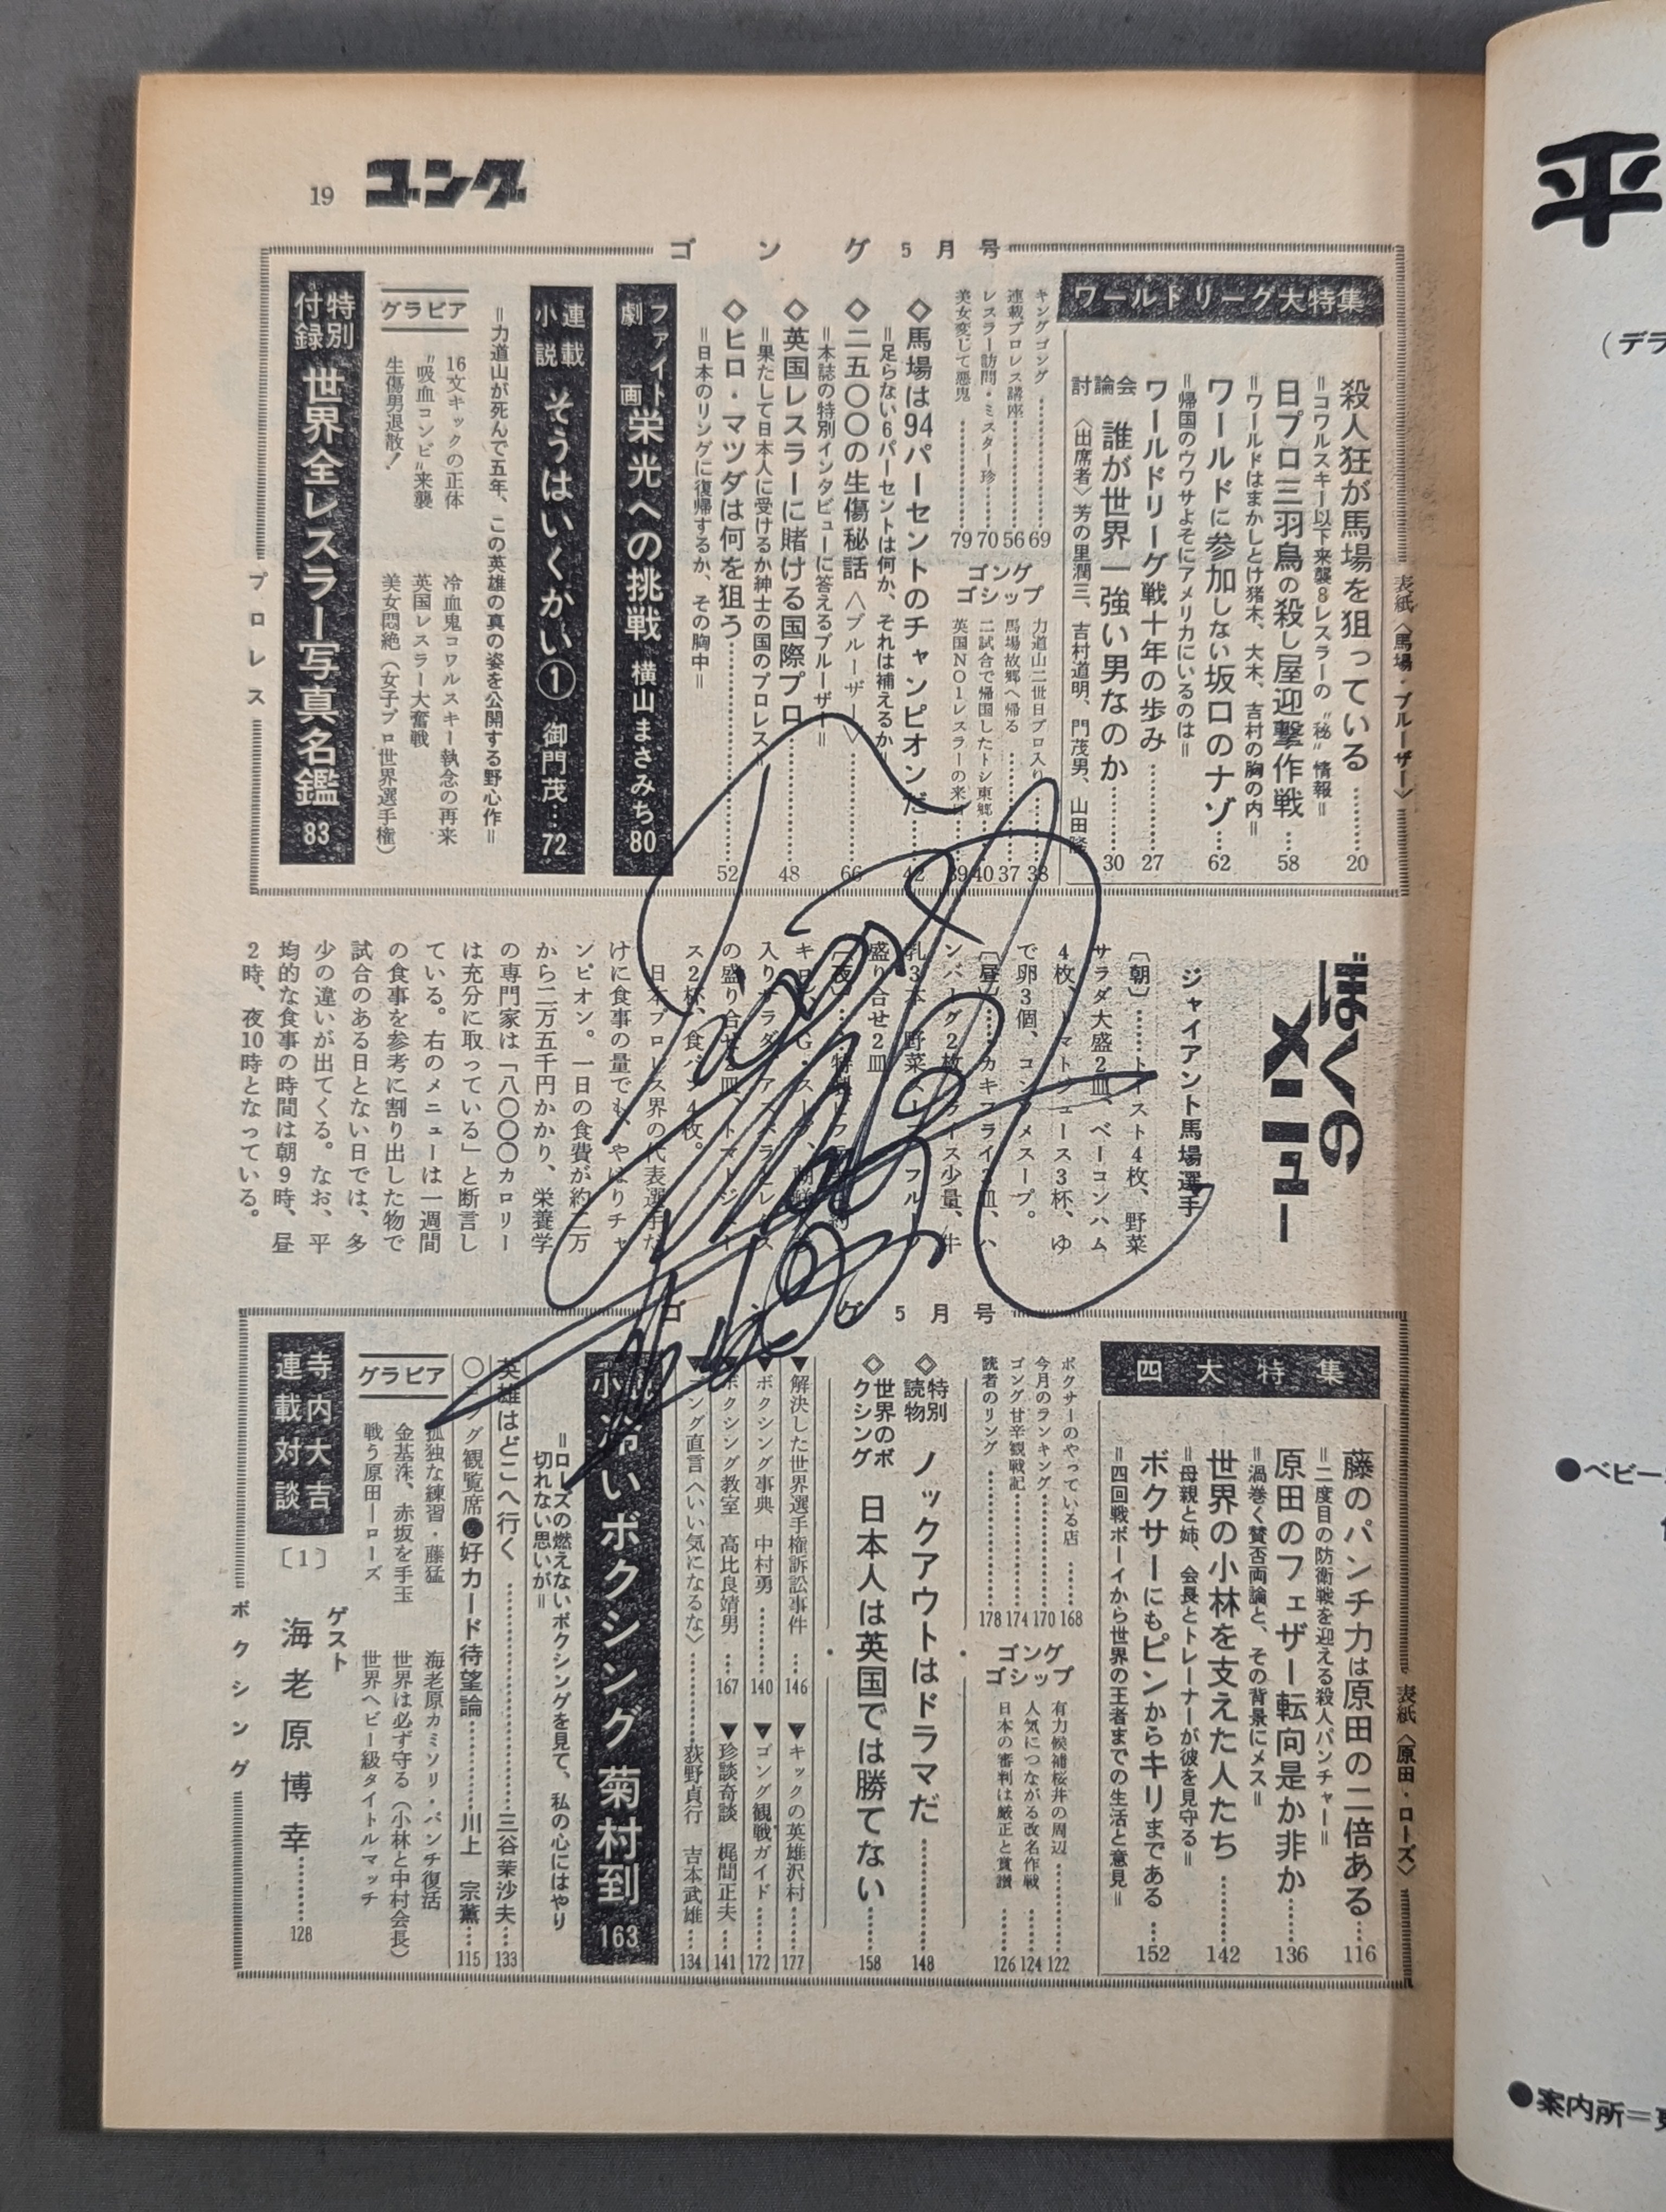 19
ゴング
ゴング5月号
表紙〈馬場・ブルーザー〉
ワールドリーグ大特集
殺人狂が馬場を狙っている……20
＝コワルスキー以下来襲8レスラーの〝秘〟情報＝
日プロ三羽鳥の殺し屋迎撃作戦……58
＝ワールドはまかしとけ猪木、大木、吉村の胸の内＝
ワールドに参加しない坂口のナゾ……62
＝帰国のウワサよそにアメリカにいるのは＝
ワールドリーグ戦十年の歩み……27
討論会 誰が世界一強い男なのか……30
〈出席者〉芳の里潤三、吉村道明、門茂男、山田隆
キングコング……69
連載プロレス講座……56
レスラー訪問・ミスター珍……70
美女変じて悪鬼……79
ゴングゴシップ
力道山二世日プロ入り……38
馬場故郷へ帰る……37
二試合で帰国したトシ東郷……40
英国NO1レスラーの来日……39
◇馬場は94パーセントのチャンピオンだ……42
＝足らない6パーセントは何か、それは補えるか＝
◇二五〇〇の生傷秘話〈ブルーザー〉……66
＝本誌の特別インタビューに答えるブルーザー＝
◇英国レスラーに賭ける国際プロ……48
＝果たして日本人に受けるか紳士の国のプロレス＝
◇ヒロ・マツダは何を狙う……52
＝日本のリングに復帰するか、その胸中＝
ファイト劇画 栄光への挑戦 横山まさみち 80
連載小説 そうはいくかい① 御門茂…72
＝力道山が死んで五年、この英雄の真の姿を公開する野心作＝
グラビア
16文キックの正体
〝吸血コンビ〟来襲
生傷男退散！
冷血鬼コワルスキー執念の再来
英国レスラー大奮戦
美女悶絶（女子プロ世界選手権）
特別付録 世界全レスラー写真名鑑 83
プロレス
ぼくのメニュー
ジャイアント馬場選手
〔朝〕……トースト4枚、野菜
サラダ大盛2皿、ベーコンハム
4枚、トマトジュース3杯、ゆ
で卵3個、コンソメスープ。
〔昼〕……カキフライ2皿、ハ
ンバーグ2枚、ライス少量、牛
盛り合せ2皿
の盛り合せ2皿、トマトジュー
ス2杯、食パン4枚。
日本プロレス界の代表選手だ
けに食事の量でも、やはりチャ
ンピオン。一日の食費が約二万
から二万五千円かかり、栄養学
の専門家は「八〇〇〇カロリー
は充分に取っている」と断言し
ている。右のメニューは一週間
の食事を参考に割り出した物で
試合のある日とない日では、多
少の違いが出てくる。なお、平
均的な食事の時間は朝9時、昼
2時、夜10時となっている。
ゴング5月号
表紙〈原田・ローズ〉
四大特集
藤のパンチ力は原田の二倍ある……116
＝二度目の防衛戦を迎える殺人パンチャー＝
原田のフェザー転向是か非か……136
＝渦巻く賛否両論と、その背景にメス＝
世界の小林を支えた人たち……142
＝母親と姉、会長とトレーナーが彼を見守る＝
ボクサーにもピンからキリまである……152
＝四回戦ボーイから世界の王者までの生活と意見＝
ボクサーのやっている店……168
今月のランキング……170
ゴング甘辛観戦記……174
読者のリング……178
ゴングゴシップ
有力候補桜井の周辺……122
人気につながる改名作戦……124
日本の審判は厳正と賞讃……126
◇特別読物 ノックアウトはドラマだ……148
◇世界のボクシング 日本人は英国では勝てない……158
▼解決した世界選手権訴訟事件…146
▼キックの英雄沢村……177
▼ボクシング事典 中村勇……140
▼ゴング観戦ガイド……172
▼ボクシング教室 高比良靖男…167
▼珍談奇談 梶間正夫…141
▼ゴング直言〈いい気になるな〉……荻野貞行 吉本武雄…134
小説 冷い ボクシング 菊村到 163
＝ローズの燃えないボクシングを見て、私の心にはやり
切れない思いが＝
英雄はどこへ行く……三谷茉沙夫…133
〇ング観覧席●好カード待望論……川上宗薫…115
グラビア
孤独な練習・藤猛
金基洙、赤坂を手玉
戦う原田―ローズ
海老原カミソリ・パンチ復活
世界は必ず守る（小林と中村会長）
世界ヘビー級タイトルマッチ
寺内大吉連載対談〔1〕
ゲスト 海老原博幸……128
ボクシング
平
（デラ
●ベビー
●案内所＝